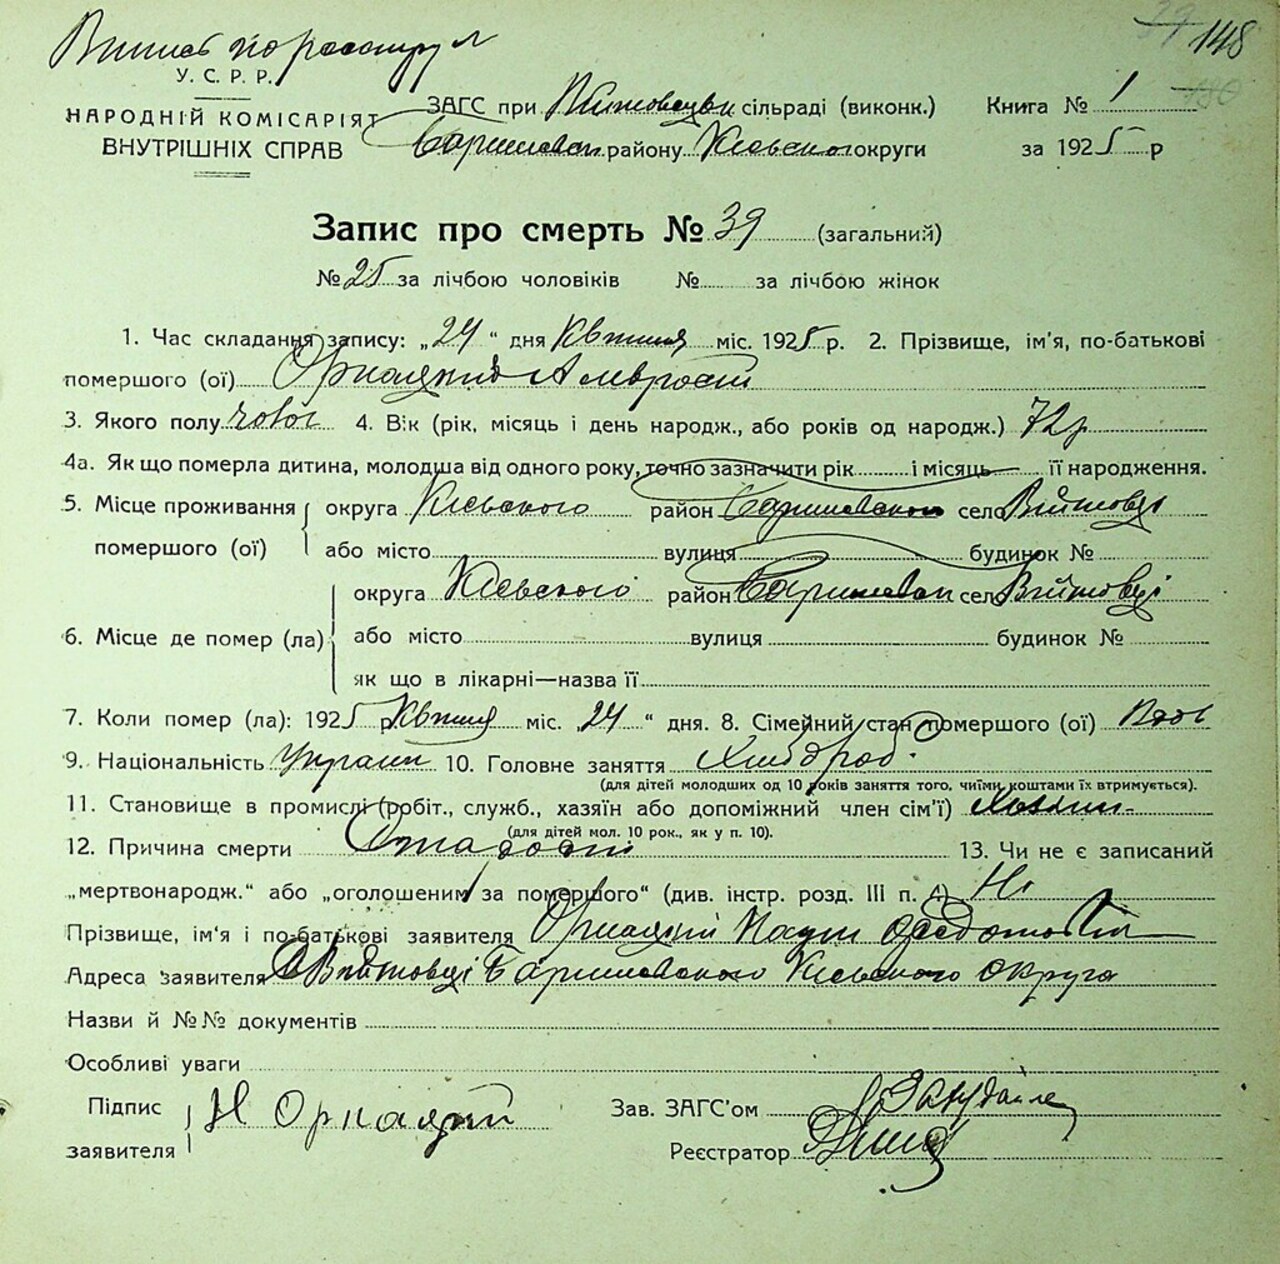 148
У. С. Р. Р.
НАРОДНІЙ КОМІСАРІЯТ
ВНУТРІШНІХ СПРАВ
ЗАГС при сільраді (виконк.)
району Киевского округи
Книга № 1
за 1925 р
Запис про смерть № 39 (загальний)
№ 25 за лічбою чоловіків № за лічбою жінок
1. Час складання запису: „24" дня Квітня міс. 1925 р. 2. Прізвище, ім'я, по-батькові
помершого (ої) Орнацкий Амвросий
3. Якого полу чолов 4. Вік (рік, місяць і день народж., або років од народж.) 72 р
4а. Як що померла дитина, молодша від одного року, точно зазначити рік і місяць її народження.
5. Місце проживання помершого (ої) округа Киевского район село Війтовці
або місто вулиця будинок №
6. Місце де помер (ла) округа Киевского район село Війтовці
або місто вулиця будинок №
як що в лікарні—назва її
7. Коли помер (ла): 1925 р Квітня міс. „24" дня. 8. Сімейний стан помершого (ої) Вдов
9. Національність Украин 10. Головне заняття Хлібороб.
(для дітей молодших од 10 років заняття того, чиїми коштами їх втримується).
11. Становище в промислі (робіт., служб., хазяїн або допоміжний член сім'ї)
(для дітей мол. 10 рок., як у п. 10).
12. Причина смерти 13. Чи не є записаний
„мертвонародж." або „оголошеним за помершого" (див. інстр. розд. III п. 4) Ні
Прізвище, ім'я і по-батькові заявителя Орнацкий
Адреса заявителя С Війтовці Баришевского Киевского округа
Назви й №№ документів
Особливі уваги
Підпис заявителя Н Орнацкий
Зав. ЗАГС'ом
Реєстратор